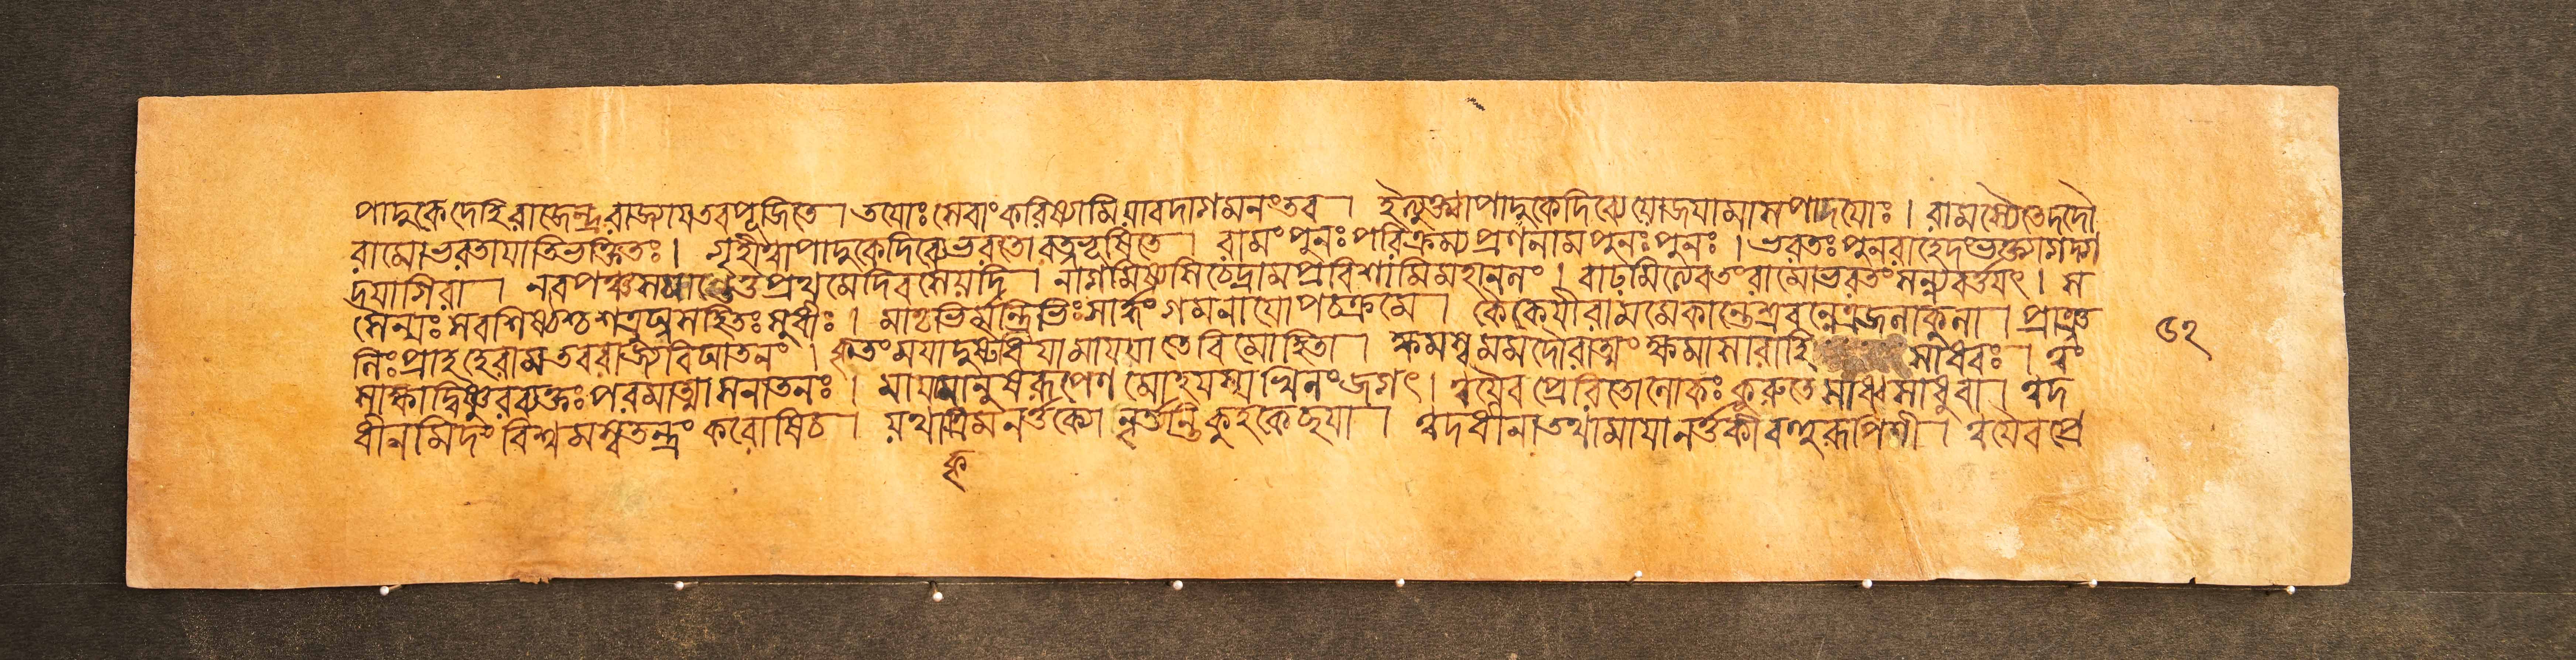 পাদুকেদেহিরাজেন্দ্ররাজ্যাযতবপূজিতে। তযোঃসেবাংকরিষ্যামিযাবদাগমনংতব। ইত্যুক্ত্বাপাদুকেদিব্যেযোজযামাসপাদযোঃ। রামস্যৈতেদদৌ
রামোভরতাযাতিভক্তিতঃ। গৃহীত্বাপাদুকেদিব্যেভরতোরত্নভূষিতে। রামংপুনঃপরিক্রম্যপ্রণনামপুনঃপুনঃ। ভরতঃপুনরাহেদংভক্ত্যাগদ্গ
দযাগিরা। নবপঞ্চসমান্তেতুপ্রথমেদিবসেযদি। নাগমিষ্যসিচেদ্রামপ্রবিশামিমহানলং। বাঢমিত্যেবতংরামোভরতংসন্ন্যবর্ত্তযৎ। স
সৈন্যঃসবশিষ্ঠশ্চশত্রুঘ্নসহিতঃসুধীঃ। মাতৃভির্মন্ত্রিভিঃসার্দ্ধংগমনাযোপচক্রমে। কৈকেযীরামমেকান্তেস্রবন্নেত্রজলাকুলা। প্রাঞ্জ
লিঃপ্রাহহেরামতবরাজ্যবিঘাতনং। কৃতংমযাদুষ্টধিযামাযযাতেবিমোহিতা। ক্ষমস্বমমদৌরাত্ম্যংক্ষমাসারাহি সাধবঃ। ত্বং
সাক্ষাদ্বিষ্ণুরব্যক্তঃপরমাত্মাসনাতনঃ। মাযামানুষরূপেণমোহযস্যখিলংজগৎ। ত্বযৈবপ্রেরিতোলোকঃকুরুতেসাধ্বসাধুবা। ত্বদ
ধীনমিদংবিশ্বমস্বতন্ত্রং করোষিচ। যথাকৃত্রিমনর্ত্তক্যো নৃত্যন্তিকুহকেচ্ছযা। ত্বদধীনাতথামাযানর্ত্তকীবহুরূপিণী। ত্বযৈবপ্রে
কৃ
৬২